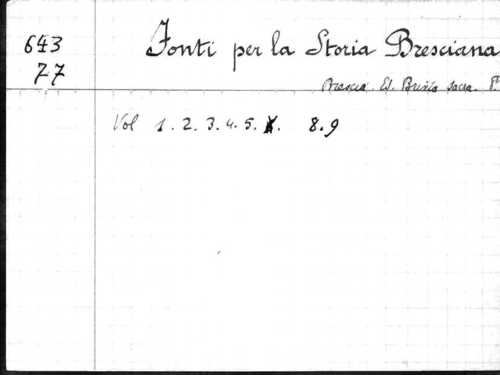 643
77
Fonti per la Storia Bresciana
Brescia. Ed. Brixia sacra.
Vol 1. 2. 3. 4. 5. 8. 9